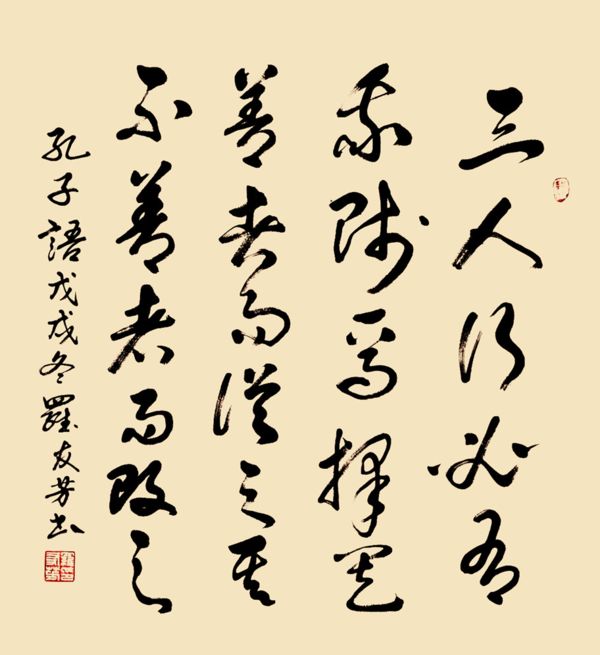 三人行必有
我師焉擇其
善者而從之其
不善者而改之
孔子語戊戌冬羅友芳書